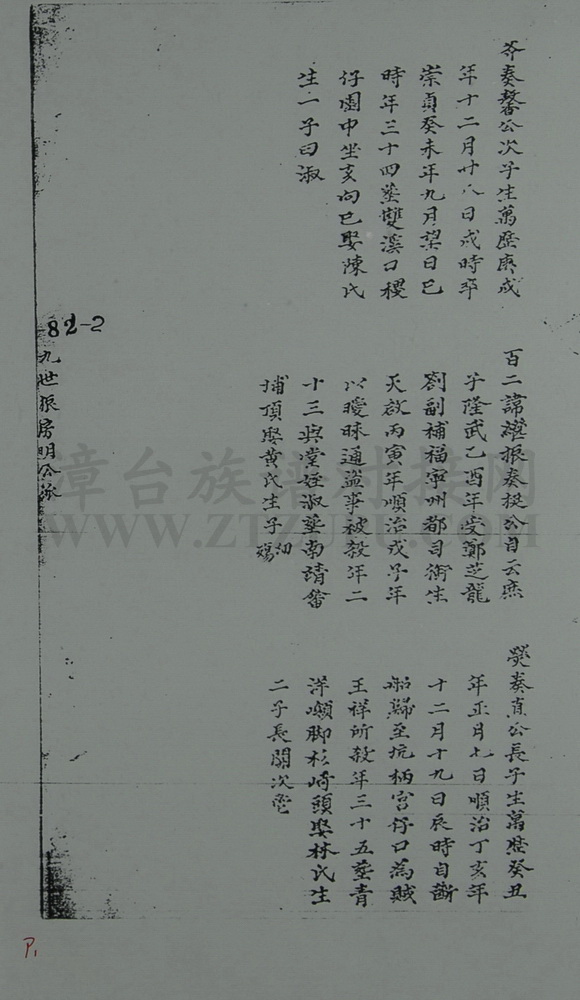 苓奏馨公次子生萬歷庚戌
年十二月廿八日戌時卒
崇貞癸未年九月望日巳
時年三十四葬雙溪口稷
仔園中坐亥向巳娶陳氏
生一子曰淑
百二諱 振奏挺公自云庶
子隆武乙酉年受鄭芝龍
劄副補福寧州都司銜生
天啟丙寅年順治戊子年
以曖昧通盜事被殺年二
十三與堂姪淑葬南靖畬
埔頂娶黃氏生子幼
殤
熒奏直公長子生萬歷癸丑
年正月七日順治丁亥年
十二月十九日辰時自斷
船歸至坑柄宮仔口為賊
王祥所殺年三十五葬青
洋嶺腳杉崎頭娶林氏生
二子長開次
82-2
九世振房明公派
漳台族譜對接網
WWW.ZTZUPU.COM
P1